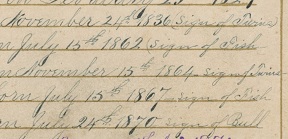 November 21st 1836 sign of Twins
n July 15th 1862 sign of Fish
n November 15th 1864 sign of Twins
orn July 15th 1867 sign of Fish
n July 24th 1870 sign of Bull